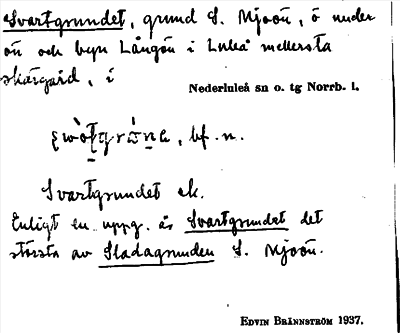 Svartgrundet, grund S. Mjoön, ö neder
ön och byn Långön i Luleå mellersta
skärgård, i
Nederluleå sn o. tg Norrb. l.
bf. n.
Svartgrundet ek.
Enligt en uppg. äs Svartgrundet det
största av Sladagrunden S. Mjoön.
EDVIN BRÄNNSTRÖM 1937.